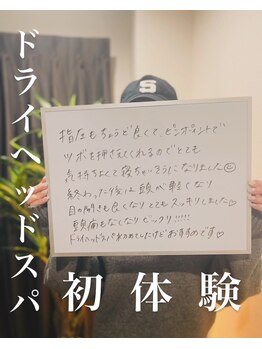 ドライヘッドスパ
S
指圧もちょうど良くて、ピンポイントで
ツボを押さえてくれるのでとても
気持ちよくて寝ちゃいそうになりました
終わった後は頭が軽くなり
目の開きも良くなりとてもスッキリしました♡
頭痛もなくなりビックリ!!!!!
ドライヘッドスパ初めてでしたけどおすすめです♡
初体験